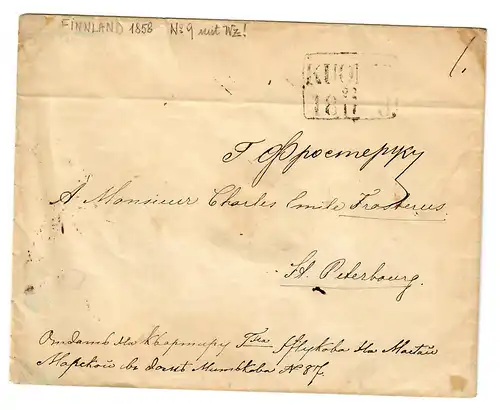 FINNLAND 1858 No 9 mit Wz!
KUO
1817
Г Фростерусу
A Monsieur Charles Emile Frosterus
St. Peterbourg.
Отдать на квартиру Г-на на Малой
Морской въ домѣ Митькова № 87.